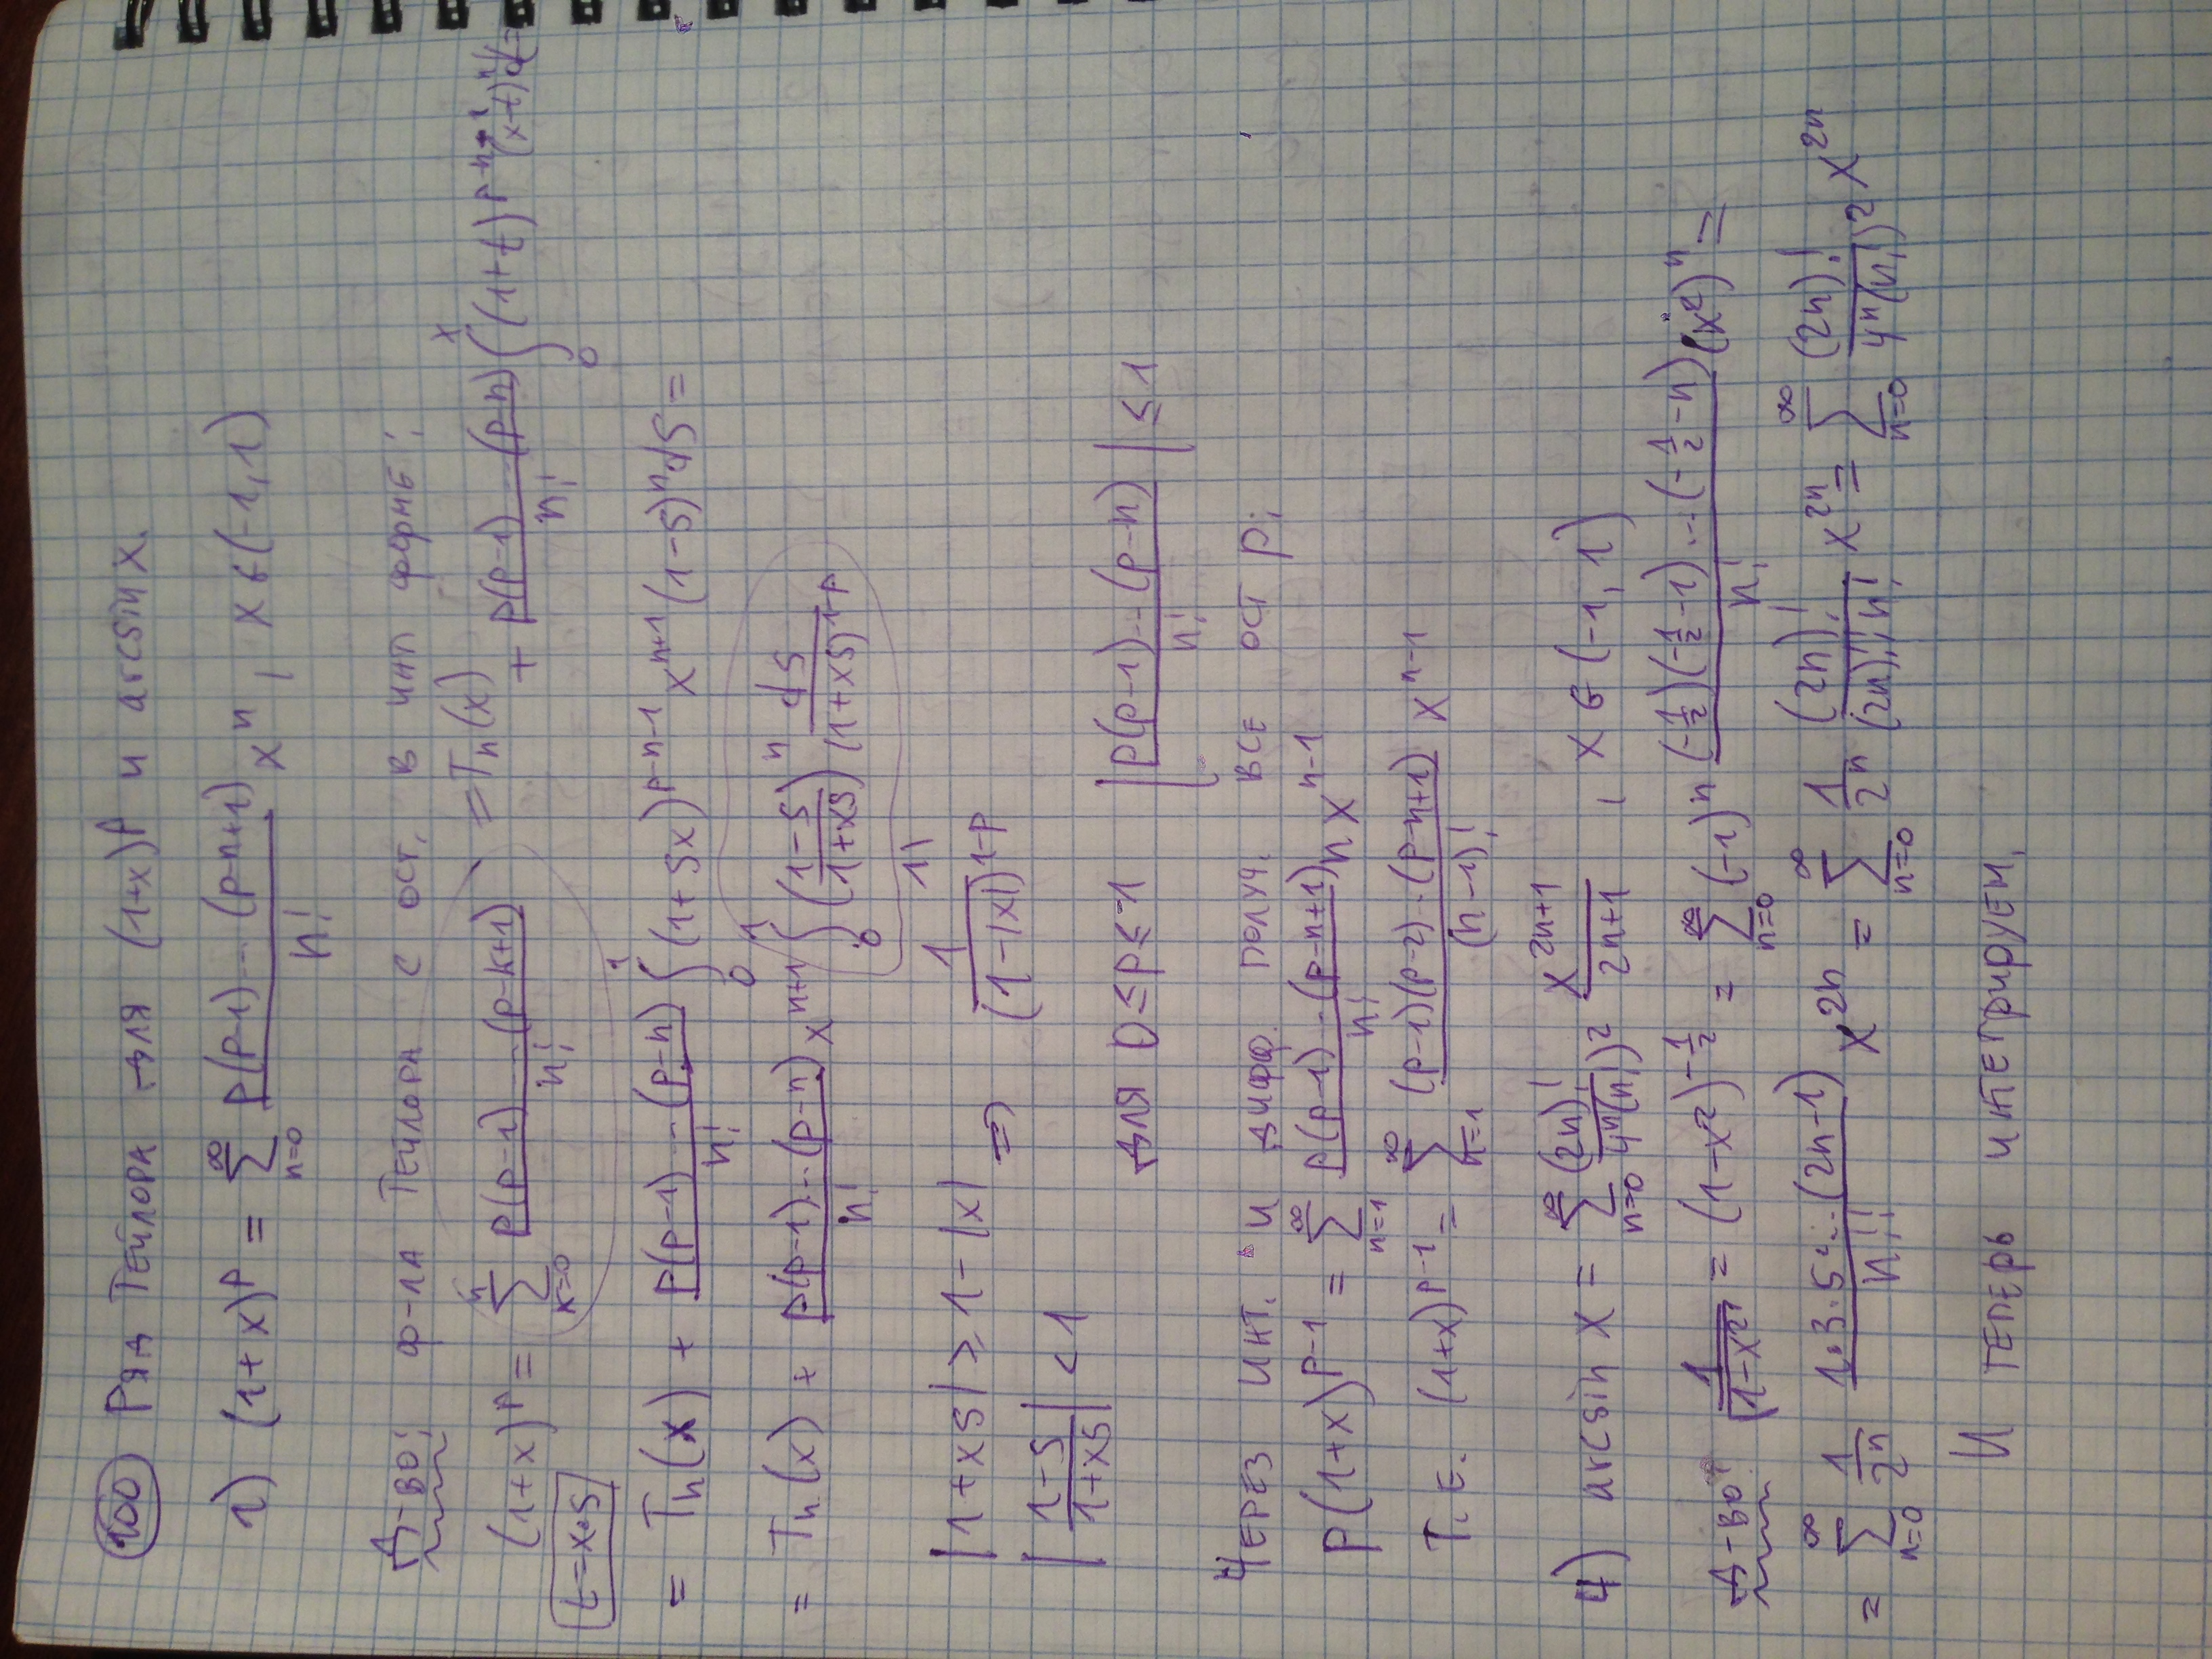 100 Ряд Тейлора для (1+x)^p и arcsin x.
1) (1+x)^p = ∑_{n=0}^{∞} p(p-1)...(p-n+1)/n! x^n, x∈(-1,1)
Д-во: ф-ла Тейлора с ост. в инт форме:
(1+x)^p = ∑_{k=0}^{n} p(p-1)...(p-k+1)/n! = T_n(x) + p(p-1)...(p-n)/n! ∫_0^x (1+t)^{p-n-1} (x-t)^n dt =
t=x·s
= T_n(x) + p(p-1)...(p-n)/n! ∫_0^1 (1+sx)^{p-n-1} x^{n+1} (1-s)^n ds =
= T_n(x) + p(p-1)...(p-n)/n! x^{n+1} ∫_0^1 ((1-s)/(1+xs))^n ds/(1+xs)^{1-p}
|1+xs| ≥ 1-|x| ⇒ 1/(1-|x|)^{1-p}
|(1-s)/(1+xs)| < 1
для 0≤p≤1 |p(p-1)...(p-n)/n!| ≤ 1
Через инт. и дифф. получ. все ост p:
p(1+x)^{p-1} = ∑_{n=1}^{∞} p(p-1)...(p-n+1)/n! n x^{n-1}
т.е. (1+x)^{p-1} = ∑_{n=1}^{∞} (p-1)(p-2)...(p-n+1)/(n-1)! x^{n-1}
4) arcsin x = ∑_{n=0}^{∞} (2n)!/(4^n(n!)^2) x^{2n+1}/(2n+1), x∈(-1,1)
Д-во: 1/√(1-x^2) = (1-x^2)^{-1/2} = ∑_{n=0}^{∞} (-1)^n (-1/2)(-1/2-1)...(-1/2-n)/n! (x^2)^n =
= ∑_{n=0}^{∞} 1/2^n 1·3·5·...(2n-1)/n!! x^{2n} = ∑_{n=0}^{∞} 1/2^n (2n)!/((2n)!! n!) x^{2n} = ∑_{n=0}^{∞} (2n)!/(4^n(n!)^2) x^{2n}
И теперь интегрируем.